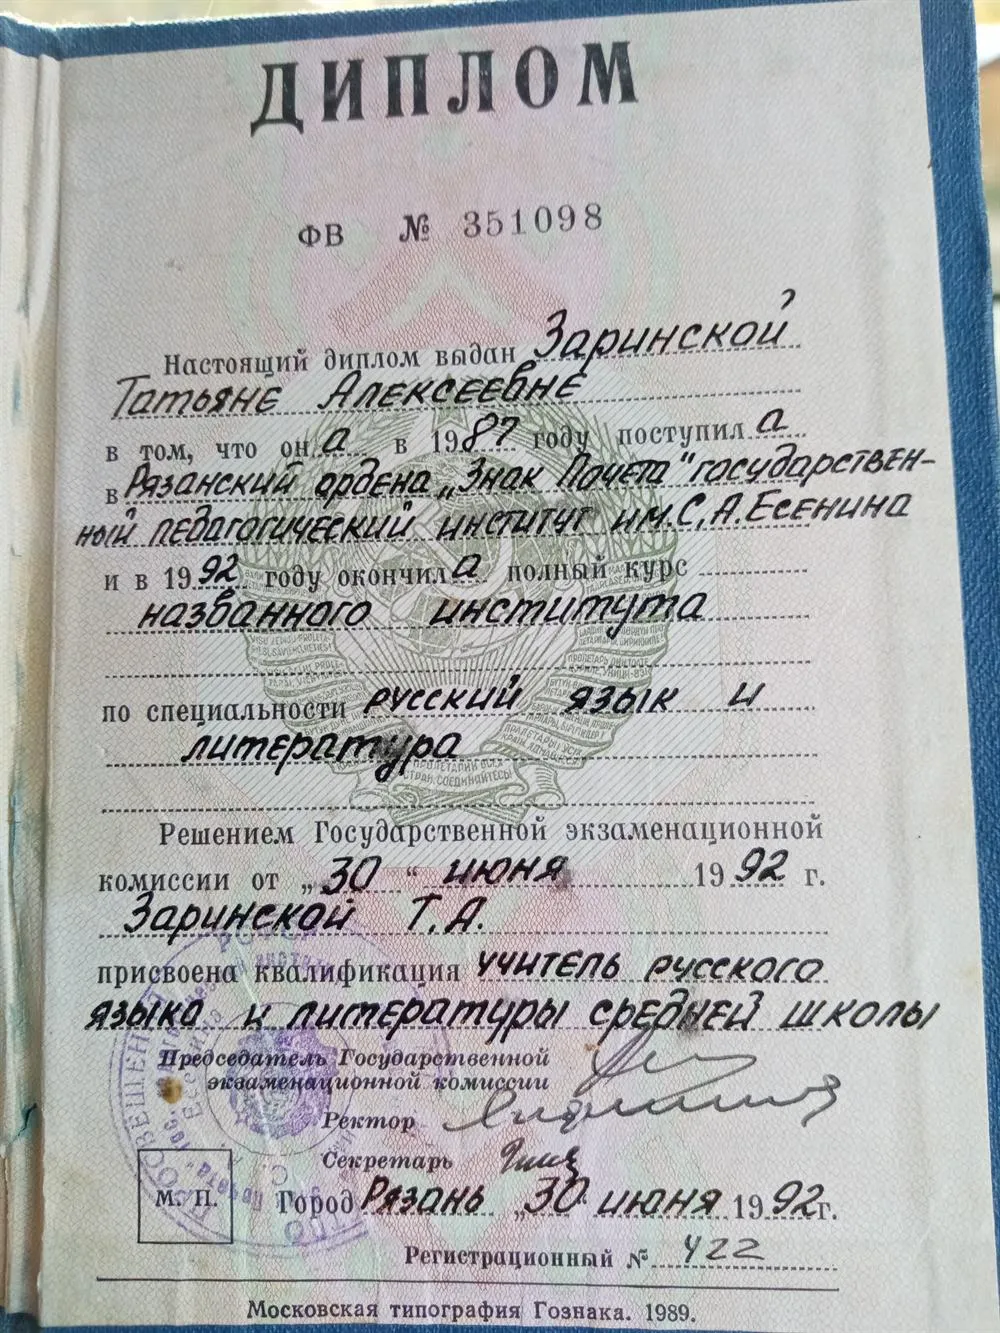 ДИПЛОМ
ФВ № 351098
Настоящий диплом выдан Заринской
Татьяне Алексеевне
в том, что он а в 1987 году поступил а
в Рязанский ордена „Знак Почета" государствен-
ный педагогический институт им. С. А. Есенина
и в 1992 году окончил а полный курс
названного института
по специальности русский язык и
литература
Решением Государственной экзаменационной
комиссии от „30“ июня 1992 г.
Заринской Т. А.
присвоена квалификация учитель русского
языка и литературы средней школы
Председатель Государственной
экзаменационной комиссии
Ректор
Секретарь
М. П.
Город Рязань „30" июня 1992 г.
Регистрационный № 422
Московская типография Гознака. 1989.